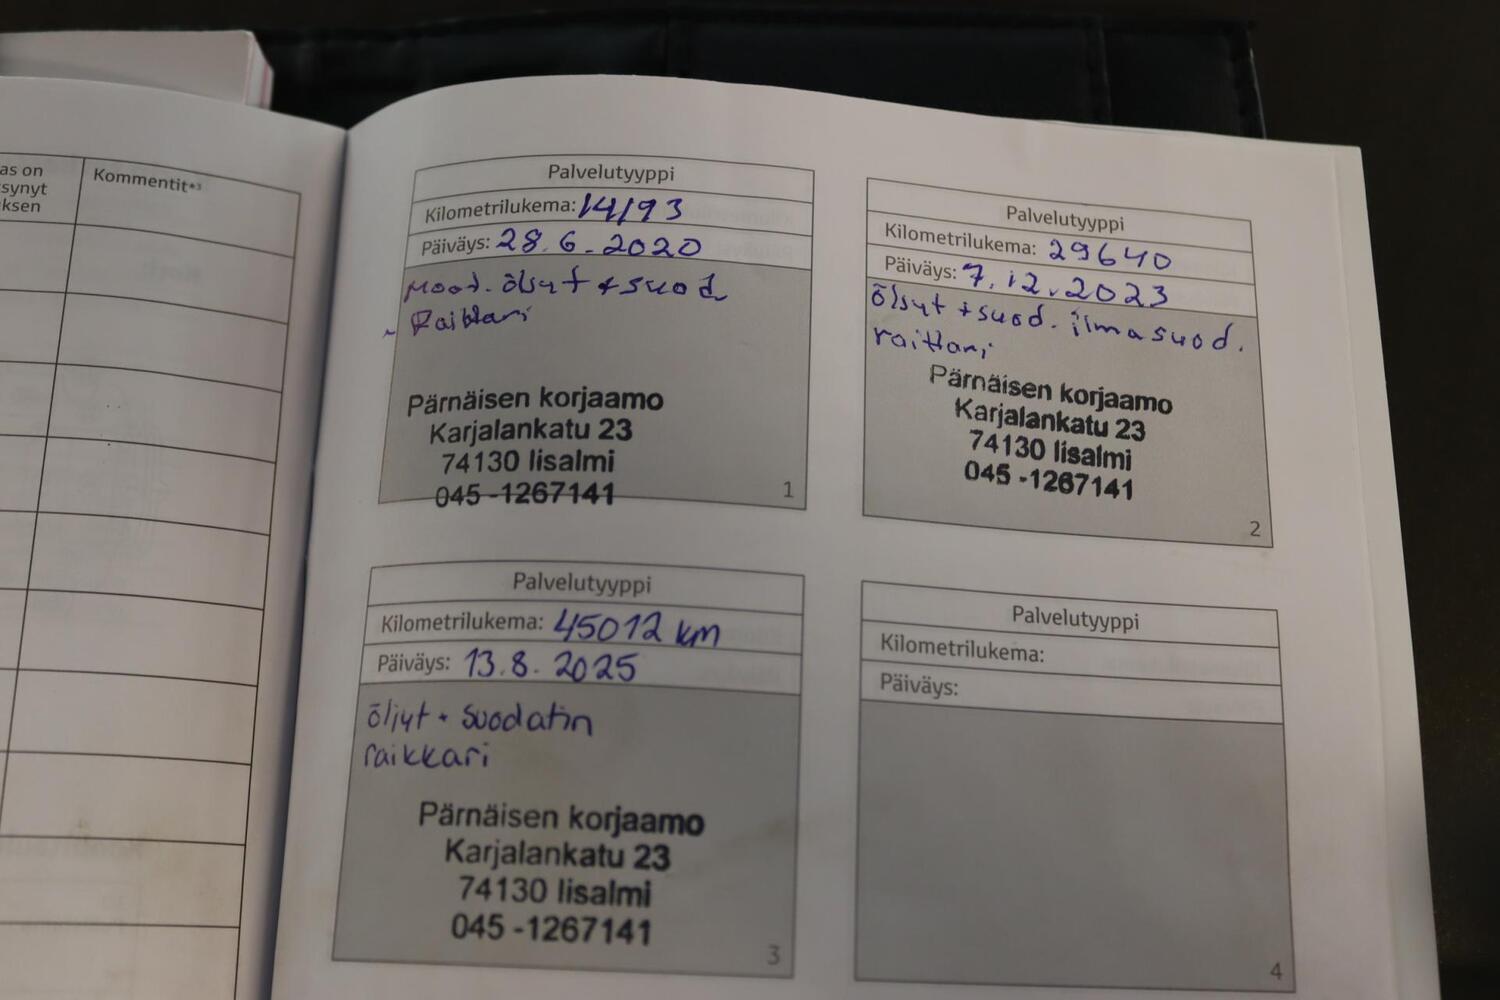 as on
synyt
ksen
Kommentit*³
Palvelutyyppi
Kilometrilukema: 14193
Päiväys: 28.6.2020
moot. öljyt + suod
Raittari
Pärnäisen korjaamo
Karjalankatu 23
74130 Iisalmi
045 -1267141
1
Palvelutyyppi
Kilometrilukema: 29640
Päiväys: 7.12.2023
öljyt + suod. ilmasuod.
raittari
Pärnäisen korjaamo
Karjalankatu 23
74130 Iisalmi
045 -1267141
2
Palvelutyyppi
Kilometrilukema: 45012 km
Päiväys: 13.8.2025
öljyt + suodatin
raikkari
Pärnäisen korjaamo
Karjalankatu 23
74130 Iisalmi
045 -1267141
3
Palvelutyyppi
Kilometrilukema:
Päiväys:
4